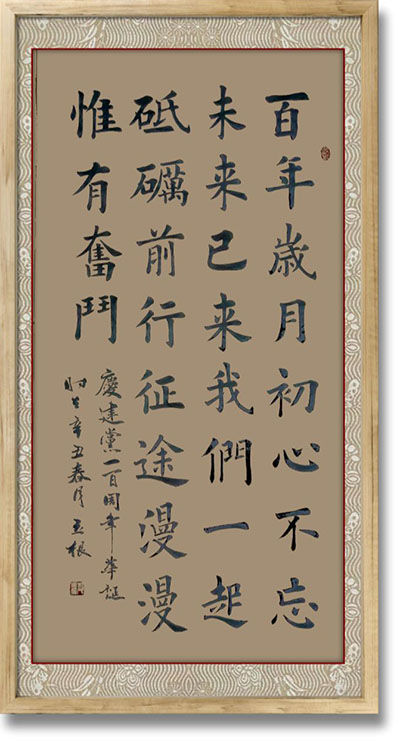 百年歲月初心不忘
未来已来我們一起
砥礪前行征途漫漫
惟有奮鬥
慶建黨一百周年華誕
时在辛丑春月玉根